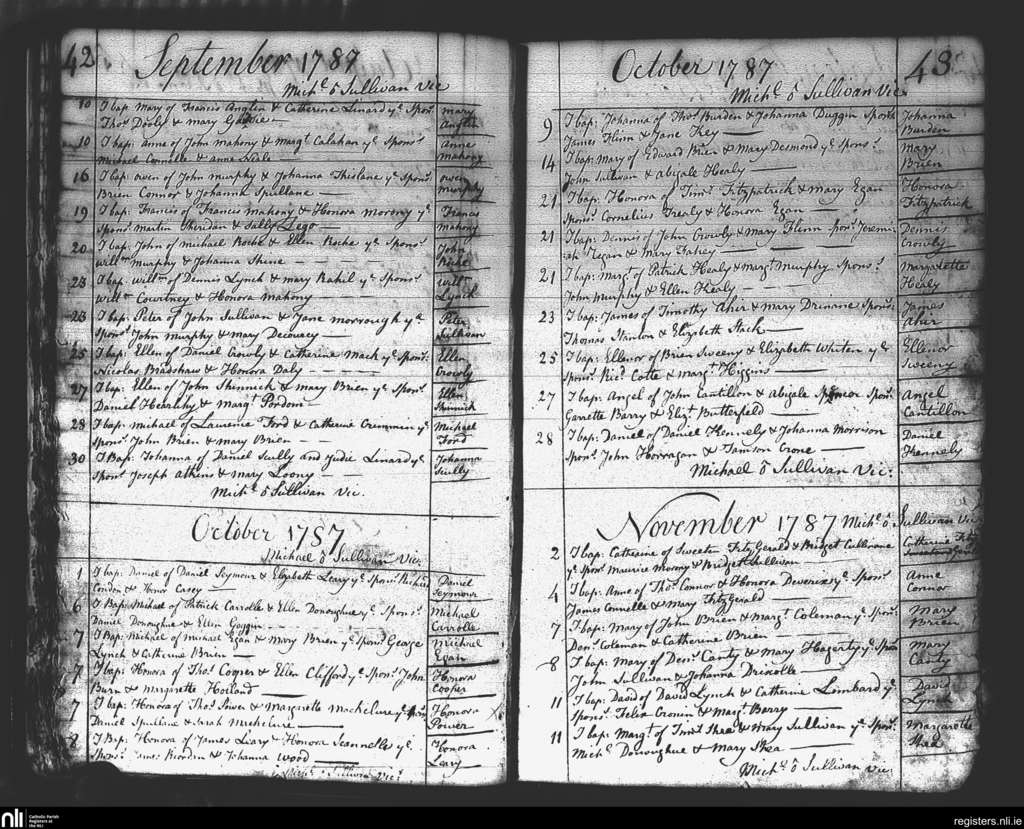 42
September 1787
Mich.l ō Sullivan Vic
10 I bap: Mary of Francis Anglin & Catherine Linard ye Spon.s
Mary
Tho.s Dooly & mary
Anglin
10 I bap: Anne of John Mahony & Marg.t Calahan ye Spons.s
Anne
Michael Connelle & Anne Neale
mahony
16 I bap: owen of John murphy & Johanna Thislane ye Spon.s
owen
Brien Connor & Johanna Spullane
murphy
19 I bap: Francis of Francis mahony & Honora morony ye
Francis
Spons.s martin Sheridan & Sally Lego
mahony
20 I bap: John of michael Roche & Ellen Roche ye Spons.s
John
will.m murphy & Johanna Shine
Roche
23 I bap: will.m of Dennis Lynch & mary Rahil ye Spons.s
Will.m
Will.m Courtney & Honora Mahony
Lynch
23 I bap: Peter of John Sullivan & Jane morrough ye
Peter
Spon.s John Murphy & mary Decourcy
Sullivan
25 I bap: Ellen of Daniel Crowly & Catherine Mack ye Spon.s
Ellen
Nicolas Bradshaw & Honora Daly
Crowly
27 I bap: Ellen of John Shinnick & mary Brien ye Spon.s
Ellen
Daniel Hearlihy & Marg.t Pordom
Shinnick
28 I bap: Michael of Laurence Ford & Catherine Cremmin ye
Michael
Spons.s John Brien & mary Brien
Ford
30 I Bap: Johanna of Daniel Scully and Judie Linard ye
Johanna
Spon.s Joseph Atkins & Mary Loony
Scully
Mich.l ō Sullivan Vic.
October 1787
Michael ō Sullivan Vic.
1 I bap: Daniel of Daniel Seymour & Elizabeth Leary ye Spon.s Richard
Daniel
Conden & Honor Casey
Seymour
6 I Bap: Michael of Patrick Carrolle & Ellen Donoughue ye Spons.s
Michael
Daniel Donoughue & Ellen Goggin
Carrolle
7 I Bap: Michael of Michael Egan & Mary Brien ye Spon.s George
Michael
Lynch & Catherine Brien
Egan
7 I bap: Honora of Tho.s Cooper & Ellen Clifford ye Spon.s John
Honora
Burn & Margarette Horland
Cooper
7 I bap: Honora of Tho.s Power & Margarette Mackclure ye Spon.s
Honora
Daniel Spullane & Sarah Mackclure
Power
8 I Bap: Honora of James Leary & Honora Scannelle ye
Honora
Spons.s James Riorden & Johanna Wood
Leary
Mich.l ō Sullivan Vic.
October 1787
43
Mich.l ō Sullivan Vic.
9 I bap: Johanna of Tho.s Burden & Johanna Duggin Spon.s
Johanna
James Flinn & Jane Key
Burden
14 I bap: Mary of Edward Brien & Mary Desmond ye Spons.s
Mary
John Sullivan & Abigale Healy
Brien
21 I bap: Honora of Tim.s Fitzpatrick & Mary Egan
Honora
Spons.s Cornelius Trealy & Honora Egan
Fitzpatrick
21 I bap: Dennis of John Crowly & Mary Flinn Spon.s Jeremi-
Dennis
ah Regan & Mary Fahey
Crowly
21 I bap: Marg.t of Patrick Healy & Marg.t Murphy Spons.s
Margarette
John Murphy & Ellen Healy
Healy
23 I bap: James of Timothy Aher & mary Drinane Spons.s
James
Thomas Stanton & Elizabeth Stack
Aher
25 I bap: Ellenor of Brien Sweeny & Elizabeth Whiten ye
Ellenor
Spons.s Ric.d Cotte & Marg.t Higgins
Sweeny
27 I bap: Angel of John Cantillon & Abigale Spenser Spon.s
Angel
Garrette Barry & Eliz.t Butterfield
Cantillon
28 I bap: Daniel of Daniel Kennely & Johanna Morrison
Daniel
Spon.s John Horragan & Tamson Crone
Kennely
Michael ō Sullivan Vic:
November 1787 Mich.l ō Sullivan Vic
2 I bap: Catherine of Sweeten FitzGerald & Bridget Cullinane
Catherine Fitz
ye Spon.s Maurice Morny & Bridget Sullivan
4 I bap: Anne of Tho.s Connor & Honora Deverix ye Spon.s
Anne
James Connelle & Mary FitzGerald
Connor
7 I bap: Mary of John Brien & Marg.t Coleman ye Spon.s
Mary
Dan.l Coleman & Catherine Brien
Brien
8 I bap: Mary of Den.s Canty & Mary Hagerty ye Spon.s
Mary
John Sullivan & Johanna Driscolle
Canty
11 I bap: David of David Lynch & Catherine Limbard ye
David
Spons.s Felix Cronin & Marg.t Barry
Lynch
11 I bap: Marg.t of Tim.s Shea & Mary Sullivan ye Spon.s
Margarette
Mich.l Donoughue & Mary Shea
Shea
Mich.l ō Sullivan Vic:
nli Catholic Parish
Registers at
the NLI
registers.nli.ie